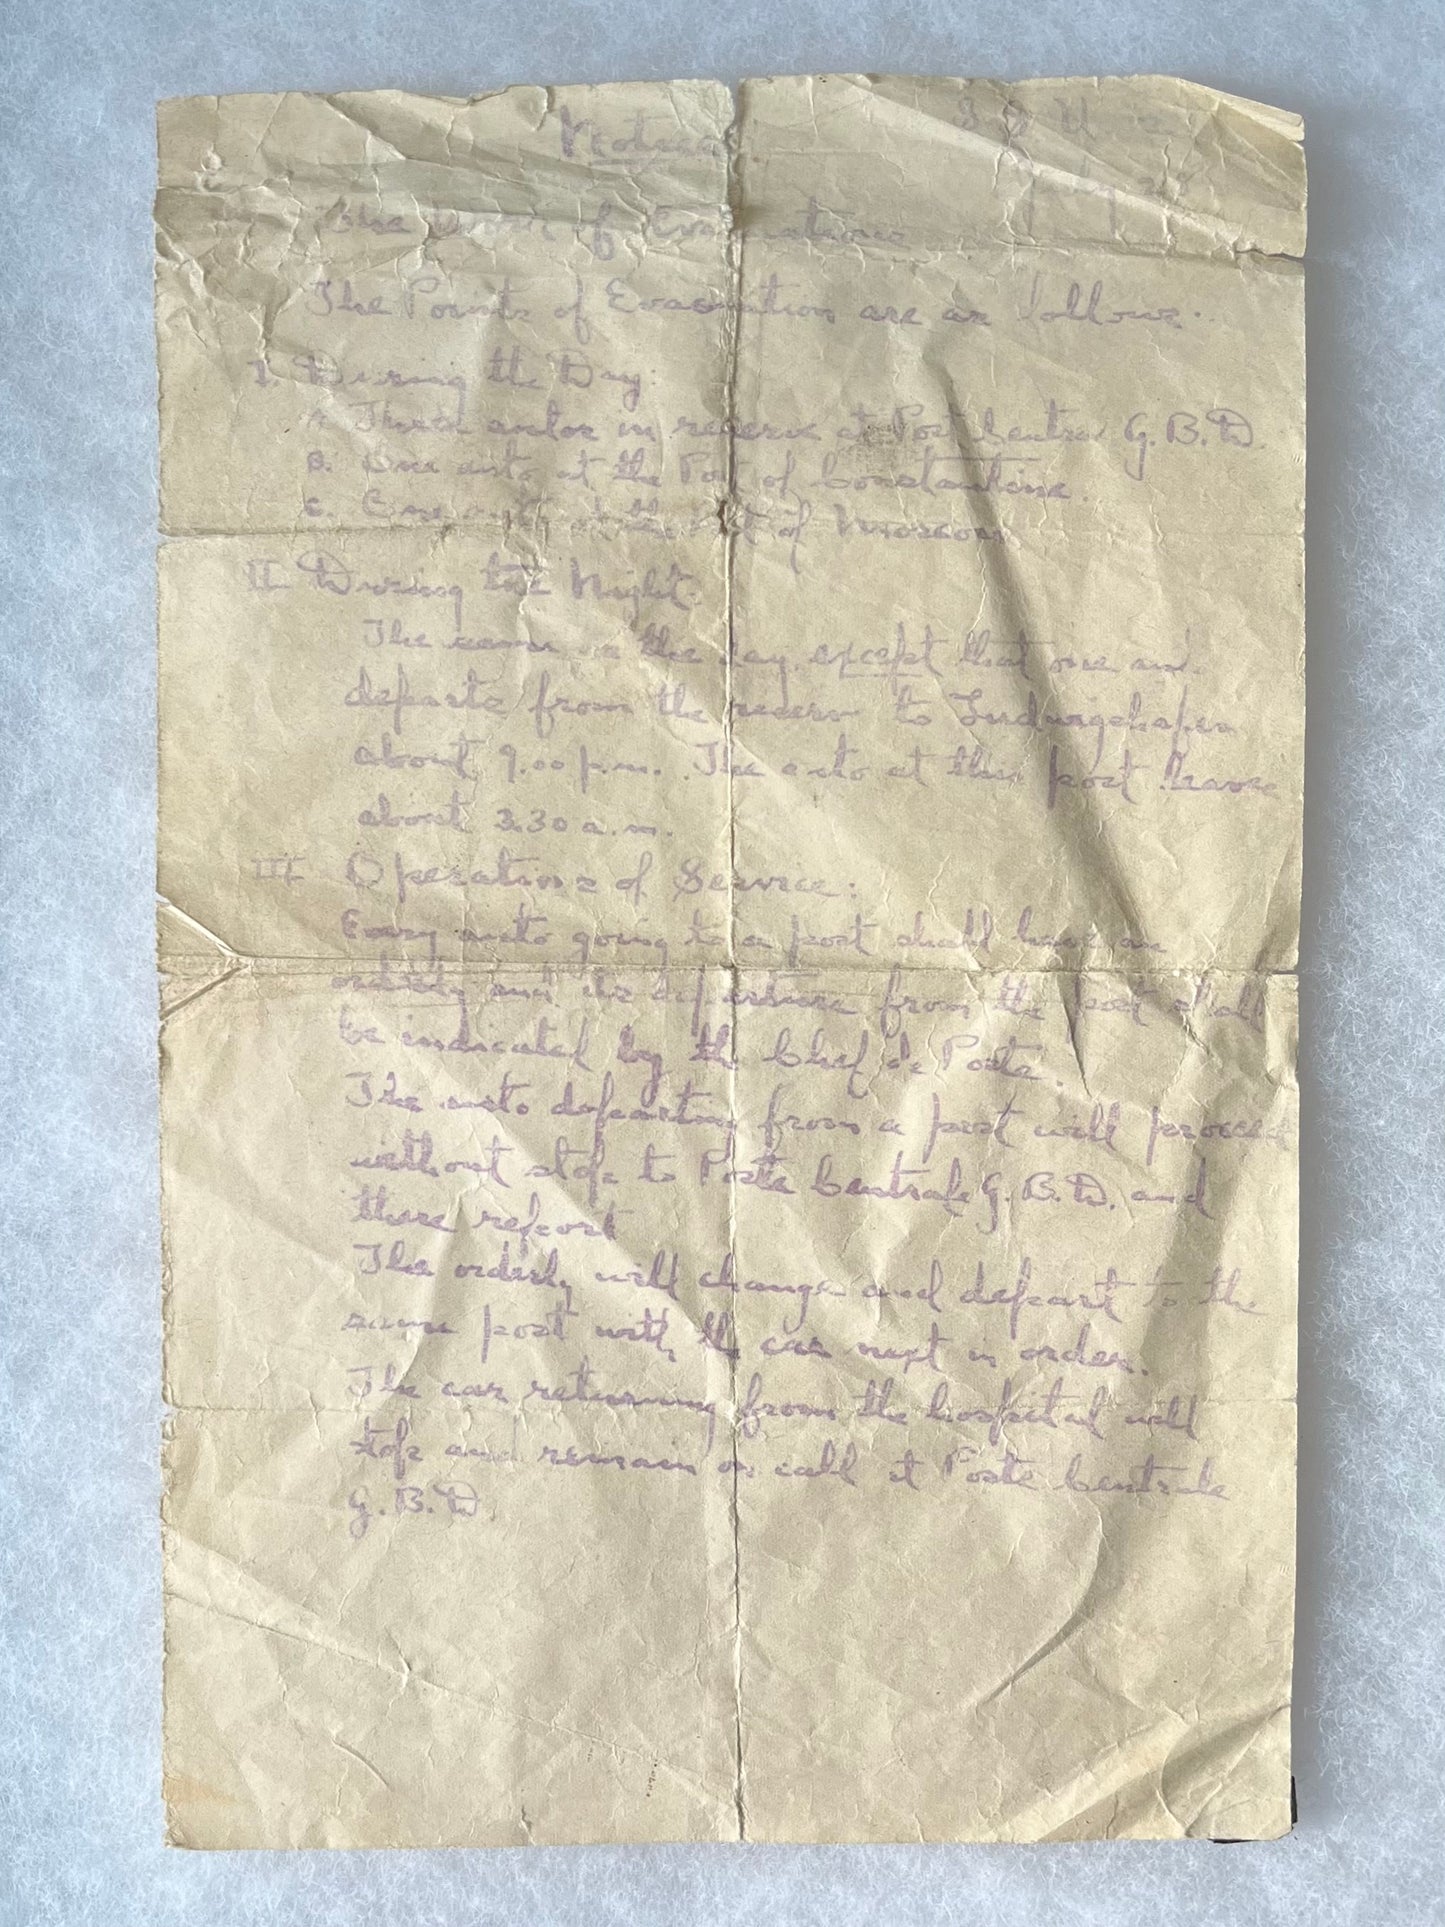 Notice
S S U
July 28
The Order of Evacuations
The Points of Evacuation are as follows:
I. During the Day:
A. Three autos in reserve at Post Centra G. B. D.
B. One auto at the Post of Constantine.
C. One auto at the Post of Moscou
II During the Night.
The same as the day, except that one
departs from the reserve to Ludwigshafen
about 9.00 p.m. The auto at this post leave
about 3.30 a.m.
III Operations of Service:
Every auto going to a post shall have an
orderly and its departure from the post shall
be indicated by the Chef de Poste.
The auto departing from a post will proceed
without stops to Poste Centrale G. B. D. and
there report
The orderly will change and depart to the
same post with the car next in order.
The car returning from the hospital will
stop and remain on call at Poste Centrale
G. B. D.